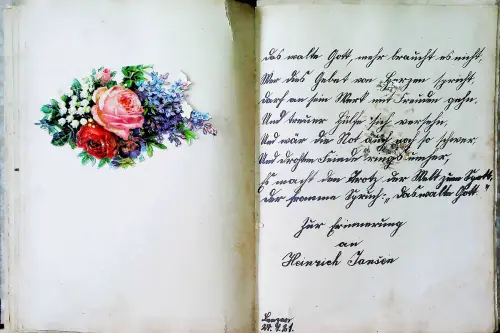 Das walte Gott, mehr braucht es nicht,
Wer das Gebet von Herzen spricht,
darf an sein Werk mit Freuden gehn,
Und treuer Hilfe sich versehn.
Und wär die Not auch noch so schwer,
Und drohten Feinde rings umher,
Es macht den Trotz der Welt zum Spott,
der fromme Spruch: "Das walte Gott."
Zur Erinnerung
an
Heinrich Janson